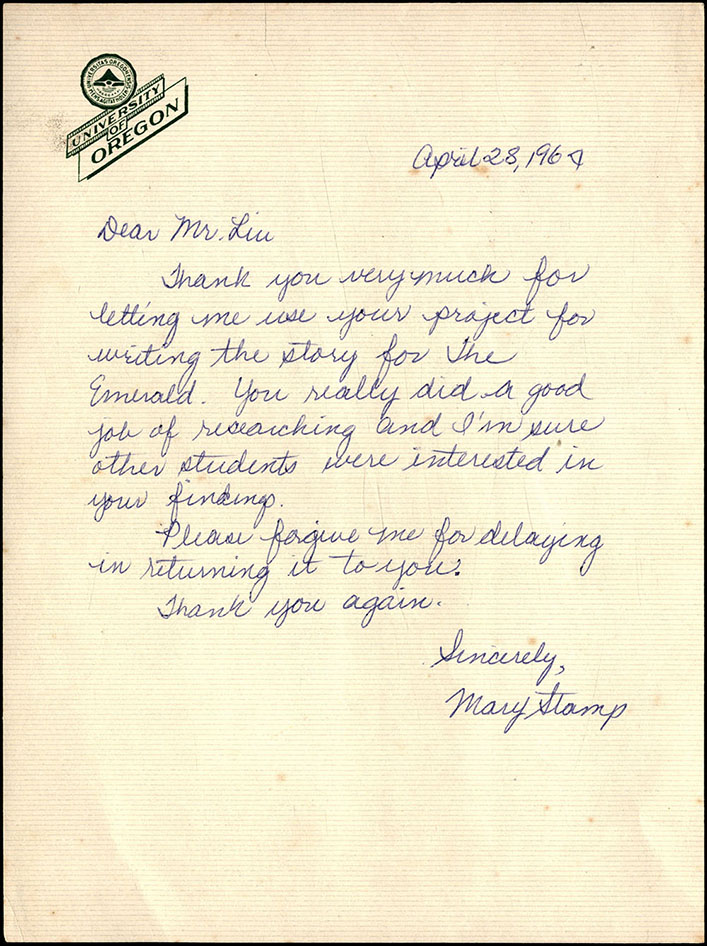 UNIVERSITAS OREGONENSIS
MENS AGITAT MOLEM
UNIVERSITY
OF
OREGON
April 28, 1964
Dear Mr. Liu
Thank you very much for
letting me use your project for
writing the story for The
Emerald. You really did a good
job of researching and I'm sure
other students were interested in
your findings.
Please forgive me for delaying
in returning it to you.
Thank you again.
Sincerely,
Mary Stamp